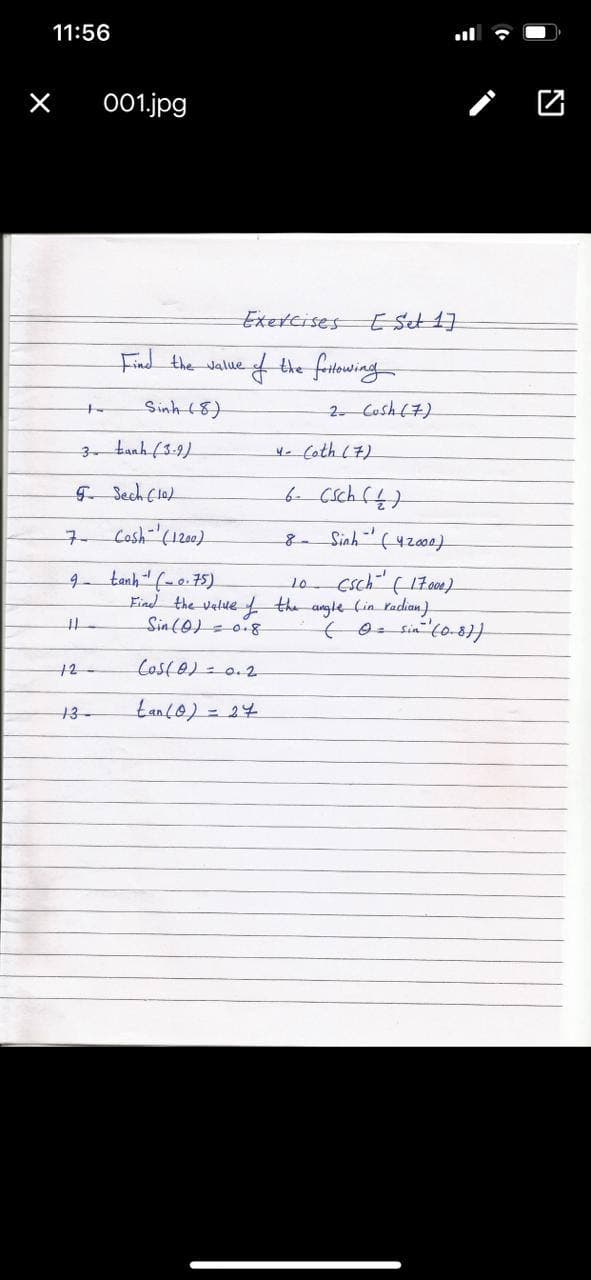 11:56
001.jpg
Exercises [Set 1]
Find the value of the following
1- Sinh (8) 2- Cosh (7)
3- tanh (3.9) 4- Coth (7)
5- Sech (10) 6- Csch (1/2)
7- Cosh⁻¹ (1200) 8- Sinh⁻¹ (42000)
9- tanh⁻¹ (-0.75) 10- Csch⁻¹ (17000)
Find the value of the angle (in radian)
11- Sin(θ) = 0.8 ( θ = sin⁻¹(0.8))
12- Cos(θ) = 0.2
13- tan(θ) = 27